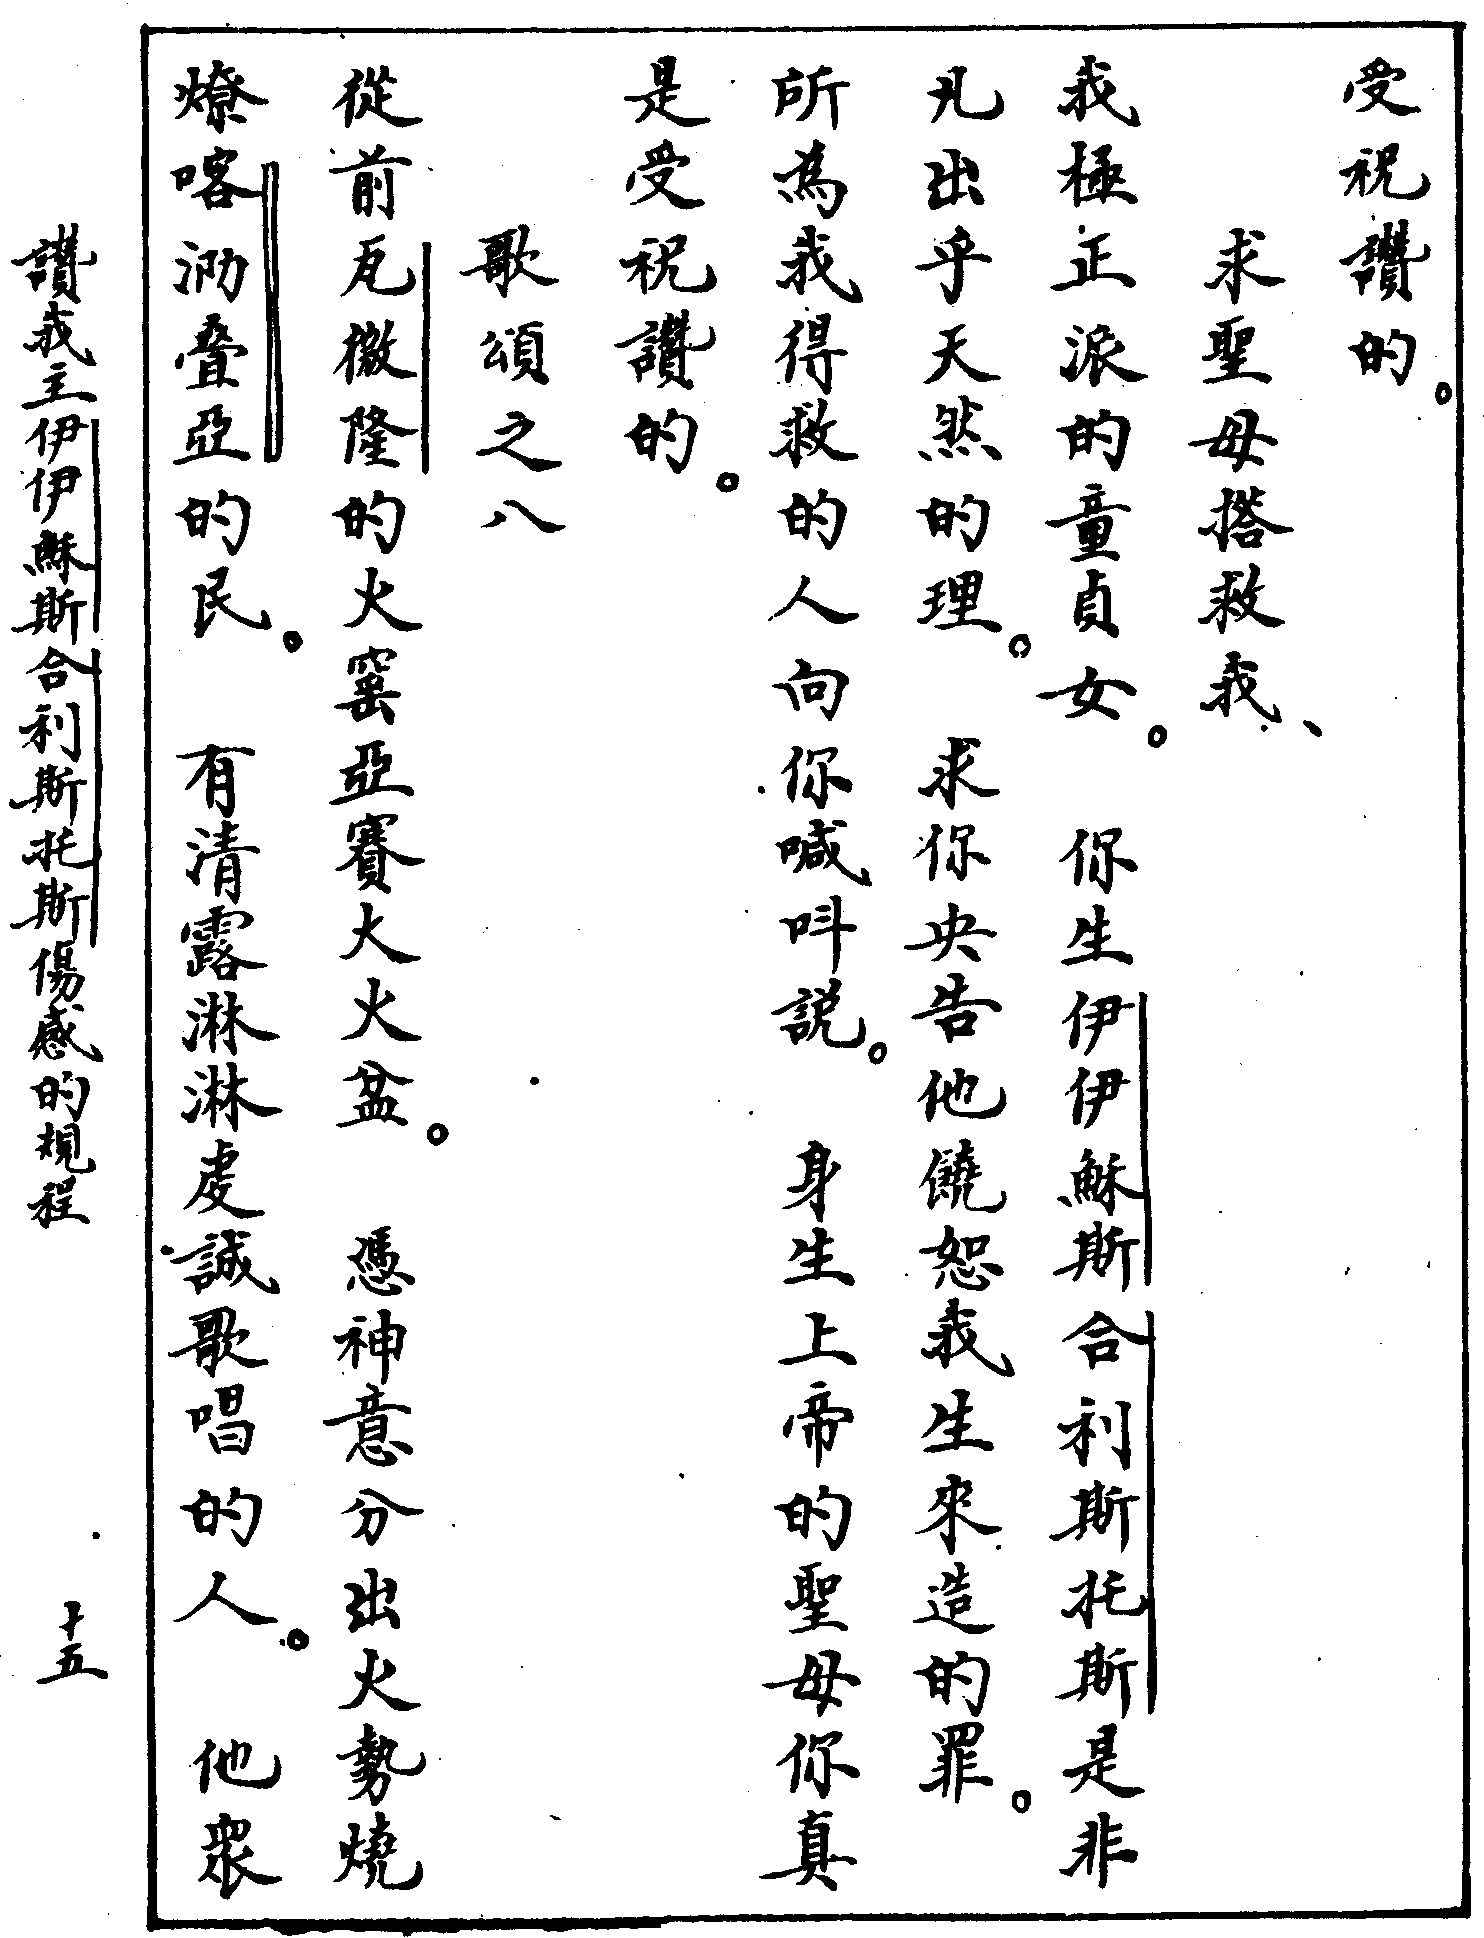 受祝讚的。
求聖母搭救我、
我極正派的童貞女。 你生伊伊穌斯合利斯托斯是非
凡出乎天然的理。 求你央告他饒恕我生來造的罪。
所為我得救的人向你喊叫説。 身生上帝的聖母你真
是受祝讚的。
歌頌之八
從前瓦徽隆的火窰亞賽大火盆。 憑神意分出火勢燒
燎喀泐叠亞的民。 有清露淋淋虔誠歌唱的人。 他衆
讚我主伊伊穌斯合利斯托斯傷感的規程
十五